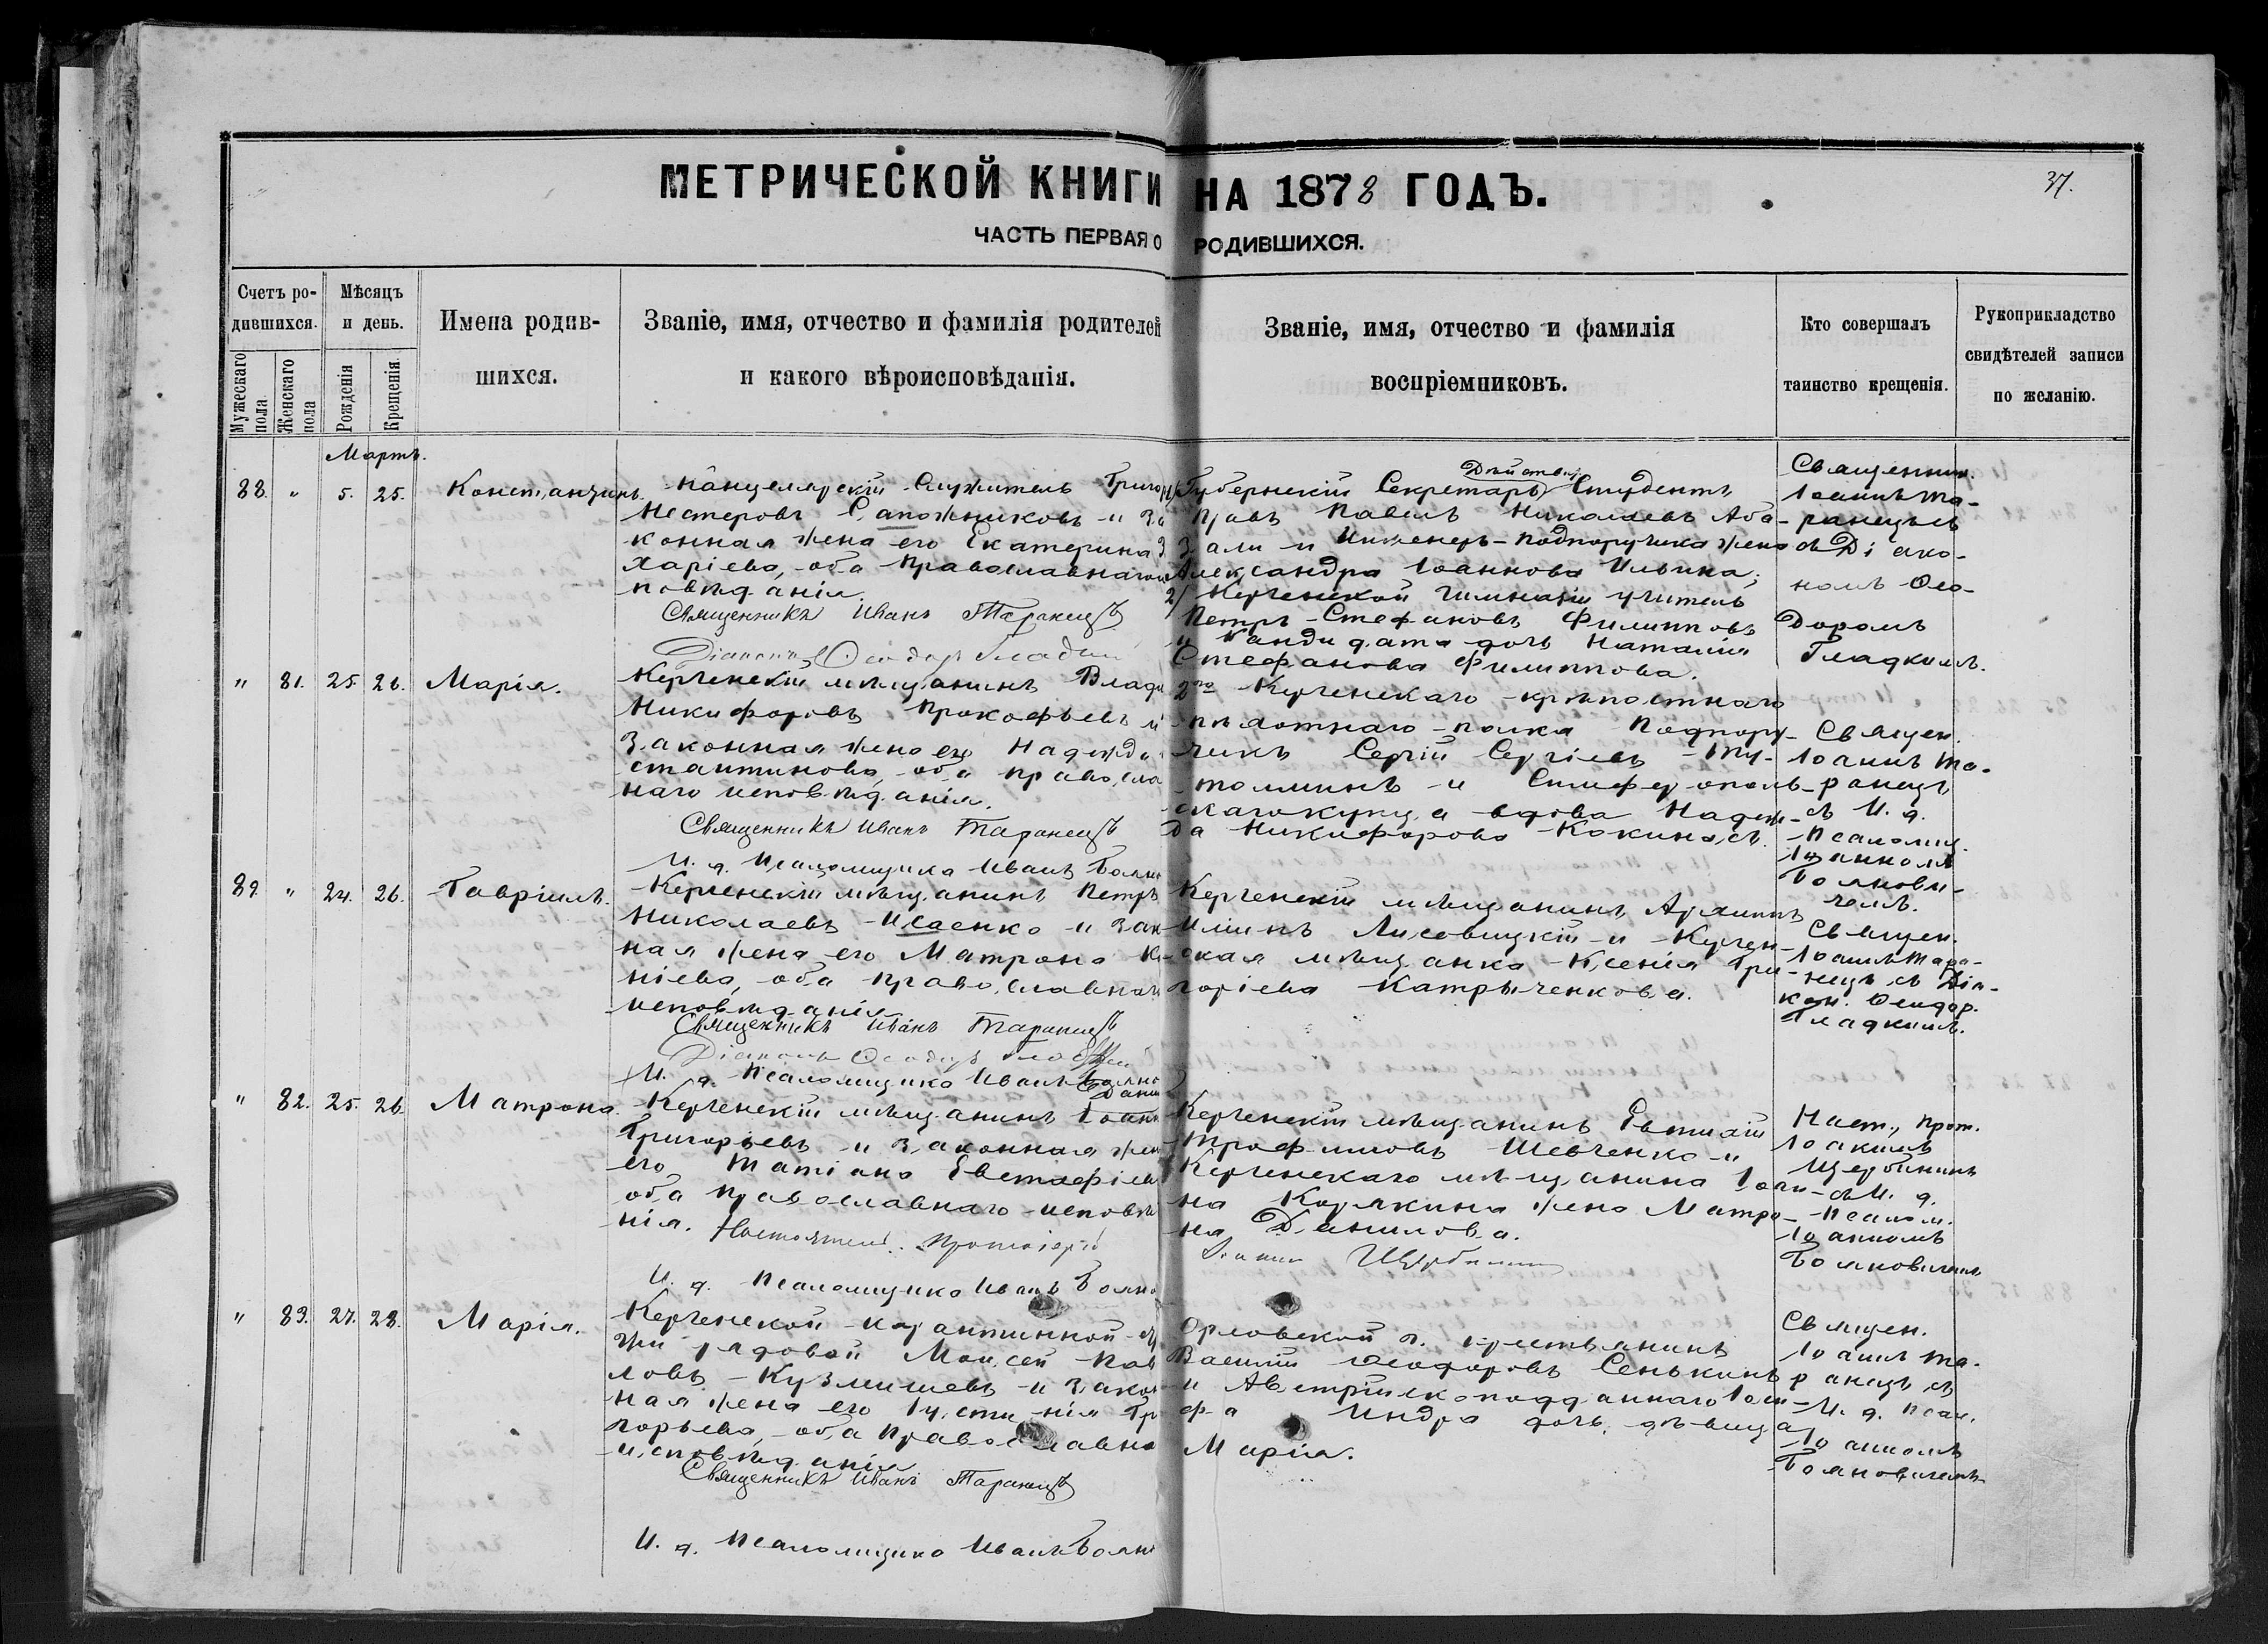 МЕТРИЧЕСКОЙ КНИГИ НА 1878 ГОДЪ.
37.
ЧАСТЬ ПЕРВАЯ О РОДИВШИХСЯ.
Счетъ ро-
дившихся.
Мужескаго
пола
Женскаго
пола
Мѣсяцъ
и день.
Рожденія
Крещенія.
Имена родив-
шихся.
Званіе, имя, отчество и фамилія родителей
и какого вѣроисповѣданія.
Званіе, имя, отчество и фамилія
воспріемниковъ.
Кто совершалъ
таинство крещенія.
Рукоприкладство
свидѣтелей записи
по желанію.
Мартъ.
88. " 5. 25.
Константинъ.
Канцелярскій Служитель Григор
Нестеровъ Сапожниковъ и За
конная жена его Екатерина З
харіева, оба Православнаго
повѣданія.
Священникъ Иванъ Таранецъ
Діаконъ Ѳеодоръ Гладкій
Дѣйствит.
Губернскій Секретарь Студентъ
Правъ Павелъ Николаевъ Аба-
зали и Инженеръ-Подпоручика жена
Александра Іоаннова Ильина;
2) Керченской Гимназіи учитель
Петръ Стефановъ Филипповъ
и Кандидата дочь Наталія
Стефанова Филиппова.
Священник.
Іоаннъ Та-
ранецъ
съ Діако-
номъ Ѳео-
доромъ
Гладкимъ.
" 81. 25. 26.
Марія.
Керченскій мѣщанинъ Влади
Никифоровъ Прокофьевъ и
Законная жена его Надежда
стантинова, оба православ
наго исповѣданія.
Священникъ Иванъ Таранецъ
И. д. Псаломщика Иванъ Бояно
2го Керченскаго крѣпостнаго
пѣхотнаго полка Подпору-
чикъ Сергій Сергіевъ Ту-
толминъ и Симферополь-
скаго купца вдова Надеж-
да Никифорова Кокина
Священ.
Іоаннъ Та-
ранецъ
съ И. д.
Псаломщ.
Іоанномъ
Боянови-
чемъ.
89. " 24. 26.
Гавріилъ.
Керченскій мѣщанинъ Петръ
Николаевъ Исаенко и Зак
ная жена его Матрона
ніева, оба Православнаго
исповѣданія.
Священникъ Иванъ Таранецъ
Діаконъ Ѳеодоръ Гладкій
И. д. Псаломщика Иванъ Бояно
Керченскій мѣщанинъ Архипъ
Ильинъ Лисовицкій и Керчен-
ская мѣщанка Ксенія Гри-
горіева Катрыченкова.
Священ.
Іоаннъ Тара-
нецъ съ Діа-
кон. Ѳеодор.
Гладкимъ.
" 82. 25. 26.
Матрона.
Дани
Керченскій мѣщанинъ Іоанн
Григорьевъ и Законная жен
его Татіана Евстафіев
оба Православнаго исповѣ
нія.
Настоятель Протоіерей
И. д. Псаломщика Иванъ Бояно
Керченскій мѣщанинъ Евтихій
Трофимовъ Шевченко и
Керченскаго мѣщанина Іоан-
на Корякина жена Матро-
на Данилова.
Іоакимъ Щербининъ
Наст., Прот.
Іоакимъ
Щербининъ
съ И. д.
Псалом.
Іоанномъ
Бояновичемъ
" 83. 27. 28.
Марія.
Керченской карантинной
жи рядовой Моисей Пав
ловъ Кузмишевъ и Закон
ная жена его Іустинія Гр
горьева, оба Православна
исповѣданія
Священникъ Иванъ Таранецъ
И. д. Псаломщика Иванъ Бояно
Орловской г. крестьянинъ
Василій Ѳеодоровъ Сенькинъ
и Австрійскоподданнаго Іоси-
фа Индра дочь дѣвица
Марія.
Священ.
Іоаннъ Та-
ранецъ съ
И. д. Псал.
Іоанномъ
Бояновичемъ